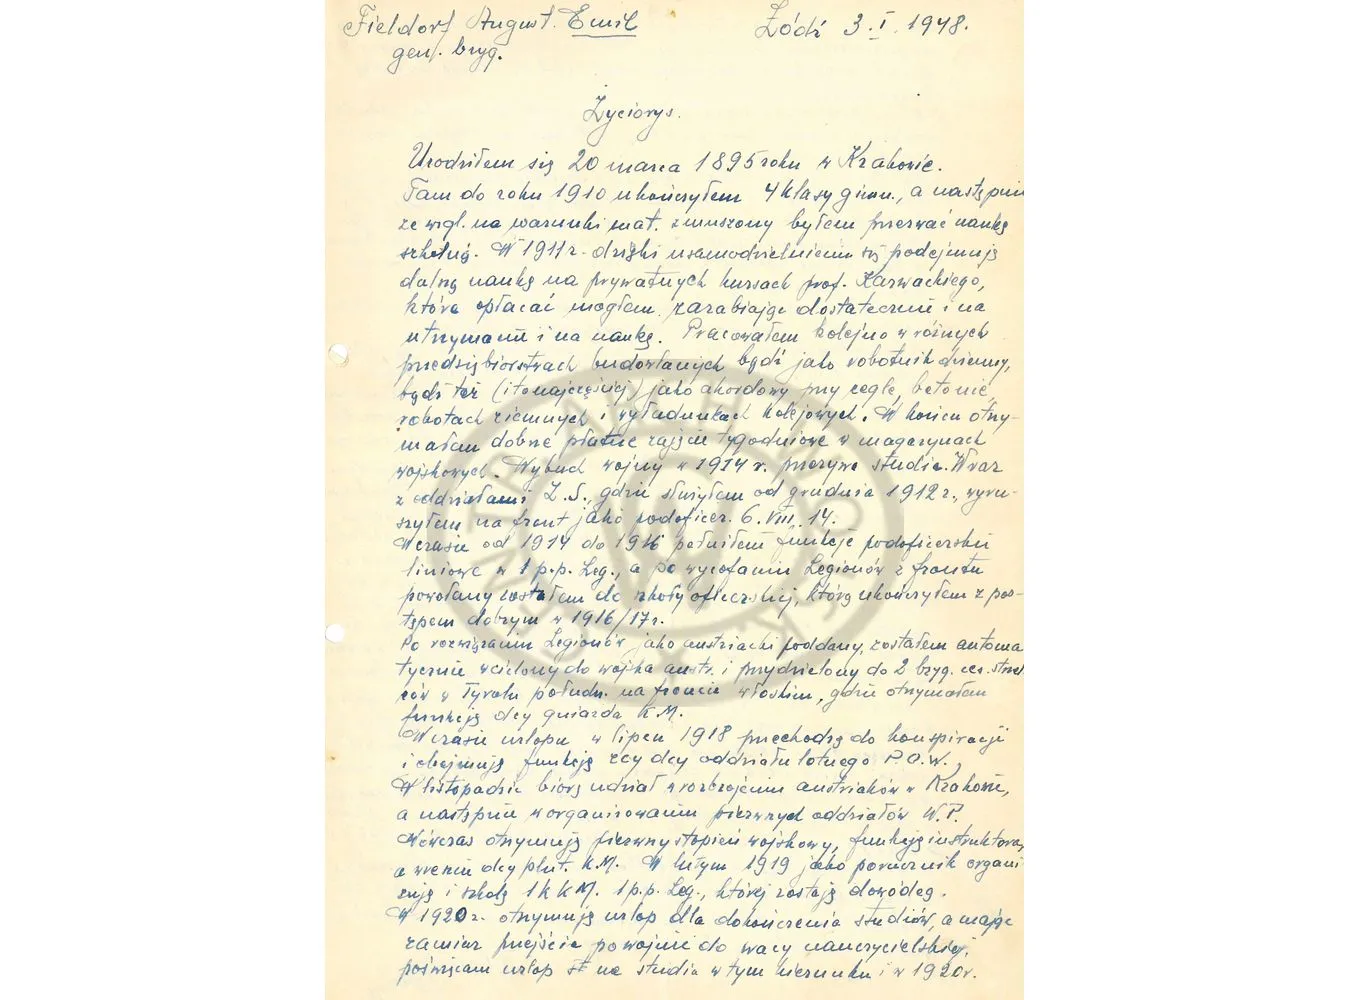 Fieldorf August Emil Łódź 3.I.1948.
gen. bryg.
Życiorys.
Urodziłem się 20 marca 1895 roku w Krakowie.
Tam do roku 1910 ukończyłem 4 klasy gimn., a następnie
ze wzgl. na warunki mat. zmuszony byłem przerwać naukę
szkolną. W 1911 r. dzięki usamodzielnieniu się podejmuję
dalszą naukę na prywatnych kursach prof. Karwackiego,
które opłacać mogłem zarabiając dostatecznie i na
utrzymanie i na naukę. Pracowałem kolejno w różnych
przedsiębiorstwach budowlanych bądź jako robotnik dzienny,
bądź też (i to najczęściej) jako akordowy przy cegle, betonie,
robotach ziemnych i wyładunkach kolejowych. W końcu otrzy-
małem dobrze płatne zajęcie tygodniowe w magazynach
wojskowych. Wybuch wojny w 1914 r. przerywa studia. Wraz
z oddziałami Z.S., gdzie służyłem od grudnia 1912 r., wyru-
szyłem na front jako podoficer 6.VIII.14.
W czasie od 1914 do 1916 pełniłem funkcje podoficerskie
liniowe w 1 p.p. Leg., a po wycofaniu Legionów z frontu
powołany zostałem do szkoły oficerskiej, którą ukończyłem z pos-
tępem dobrym w 1916/17 r.
Po rozwiązaniu Legionów jako austriacki poddany, zostałem automa
tycznie wcielony do wojska austr. i przydzielony do 2 bryg. ces. strzel
ców w Tyrolu połudn. na froncie włoskim, gdzie otrzymałem
funkcję dcy gniazda K.M.
W czasie urlopu w lipcu 1918 przechodzę do konspiracji
i obejmuję funkcję zcy dcy oddziału lotnego P.O.W.,
W listopadzie biorę udział w rozbrojeniu austriaków w Krakowie,
a następnie w organizowaniu pierwszych oddziałów W.P.
Wówczas otrzymuję pierwszy stopień wojskowy, funkcję instruktora,
a wreszcie dcy plut. K.M. W lutym 1919 jako porucznik organi
zuję i szkolę 1 k K.M. 1 p.p. Leg., której zostaję dowódcą.
W 1920 r. otrzymuję urlop dla dokończenia studiów, a mając
zamiar przejścia po wojnie do pracy nauczycielskiej,
poświęcam urlop na studia w tym kierunku i w 1920 r.